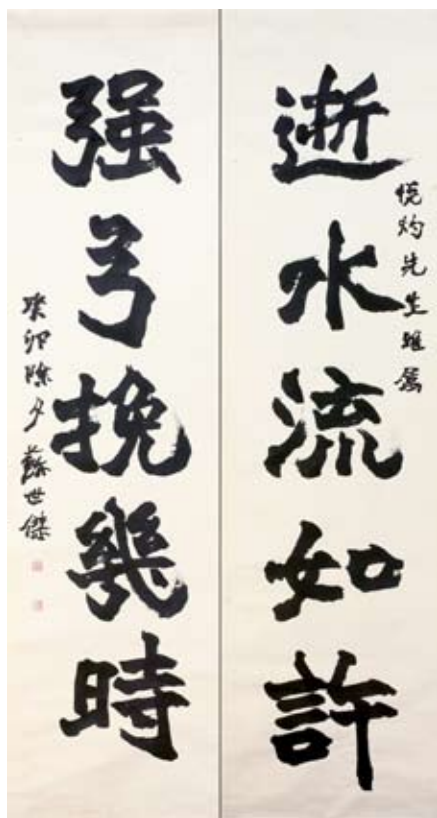 逝水流如許
悦灼先生雅屬
强弓挽幾時
癸卯除夕蘇世傑